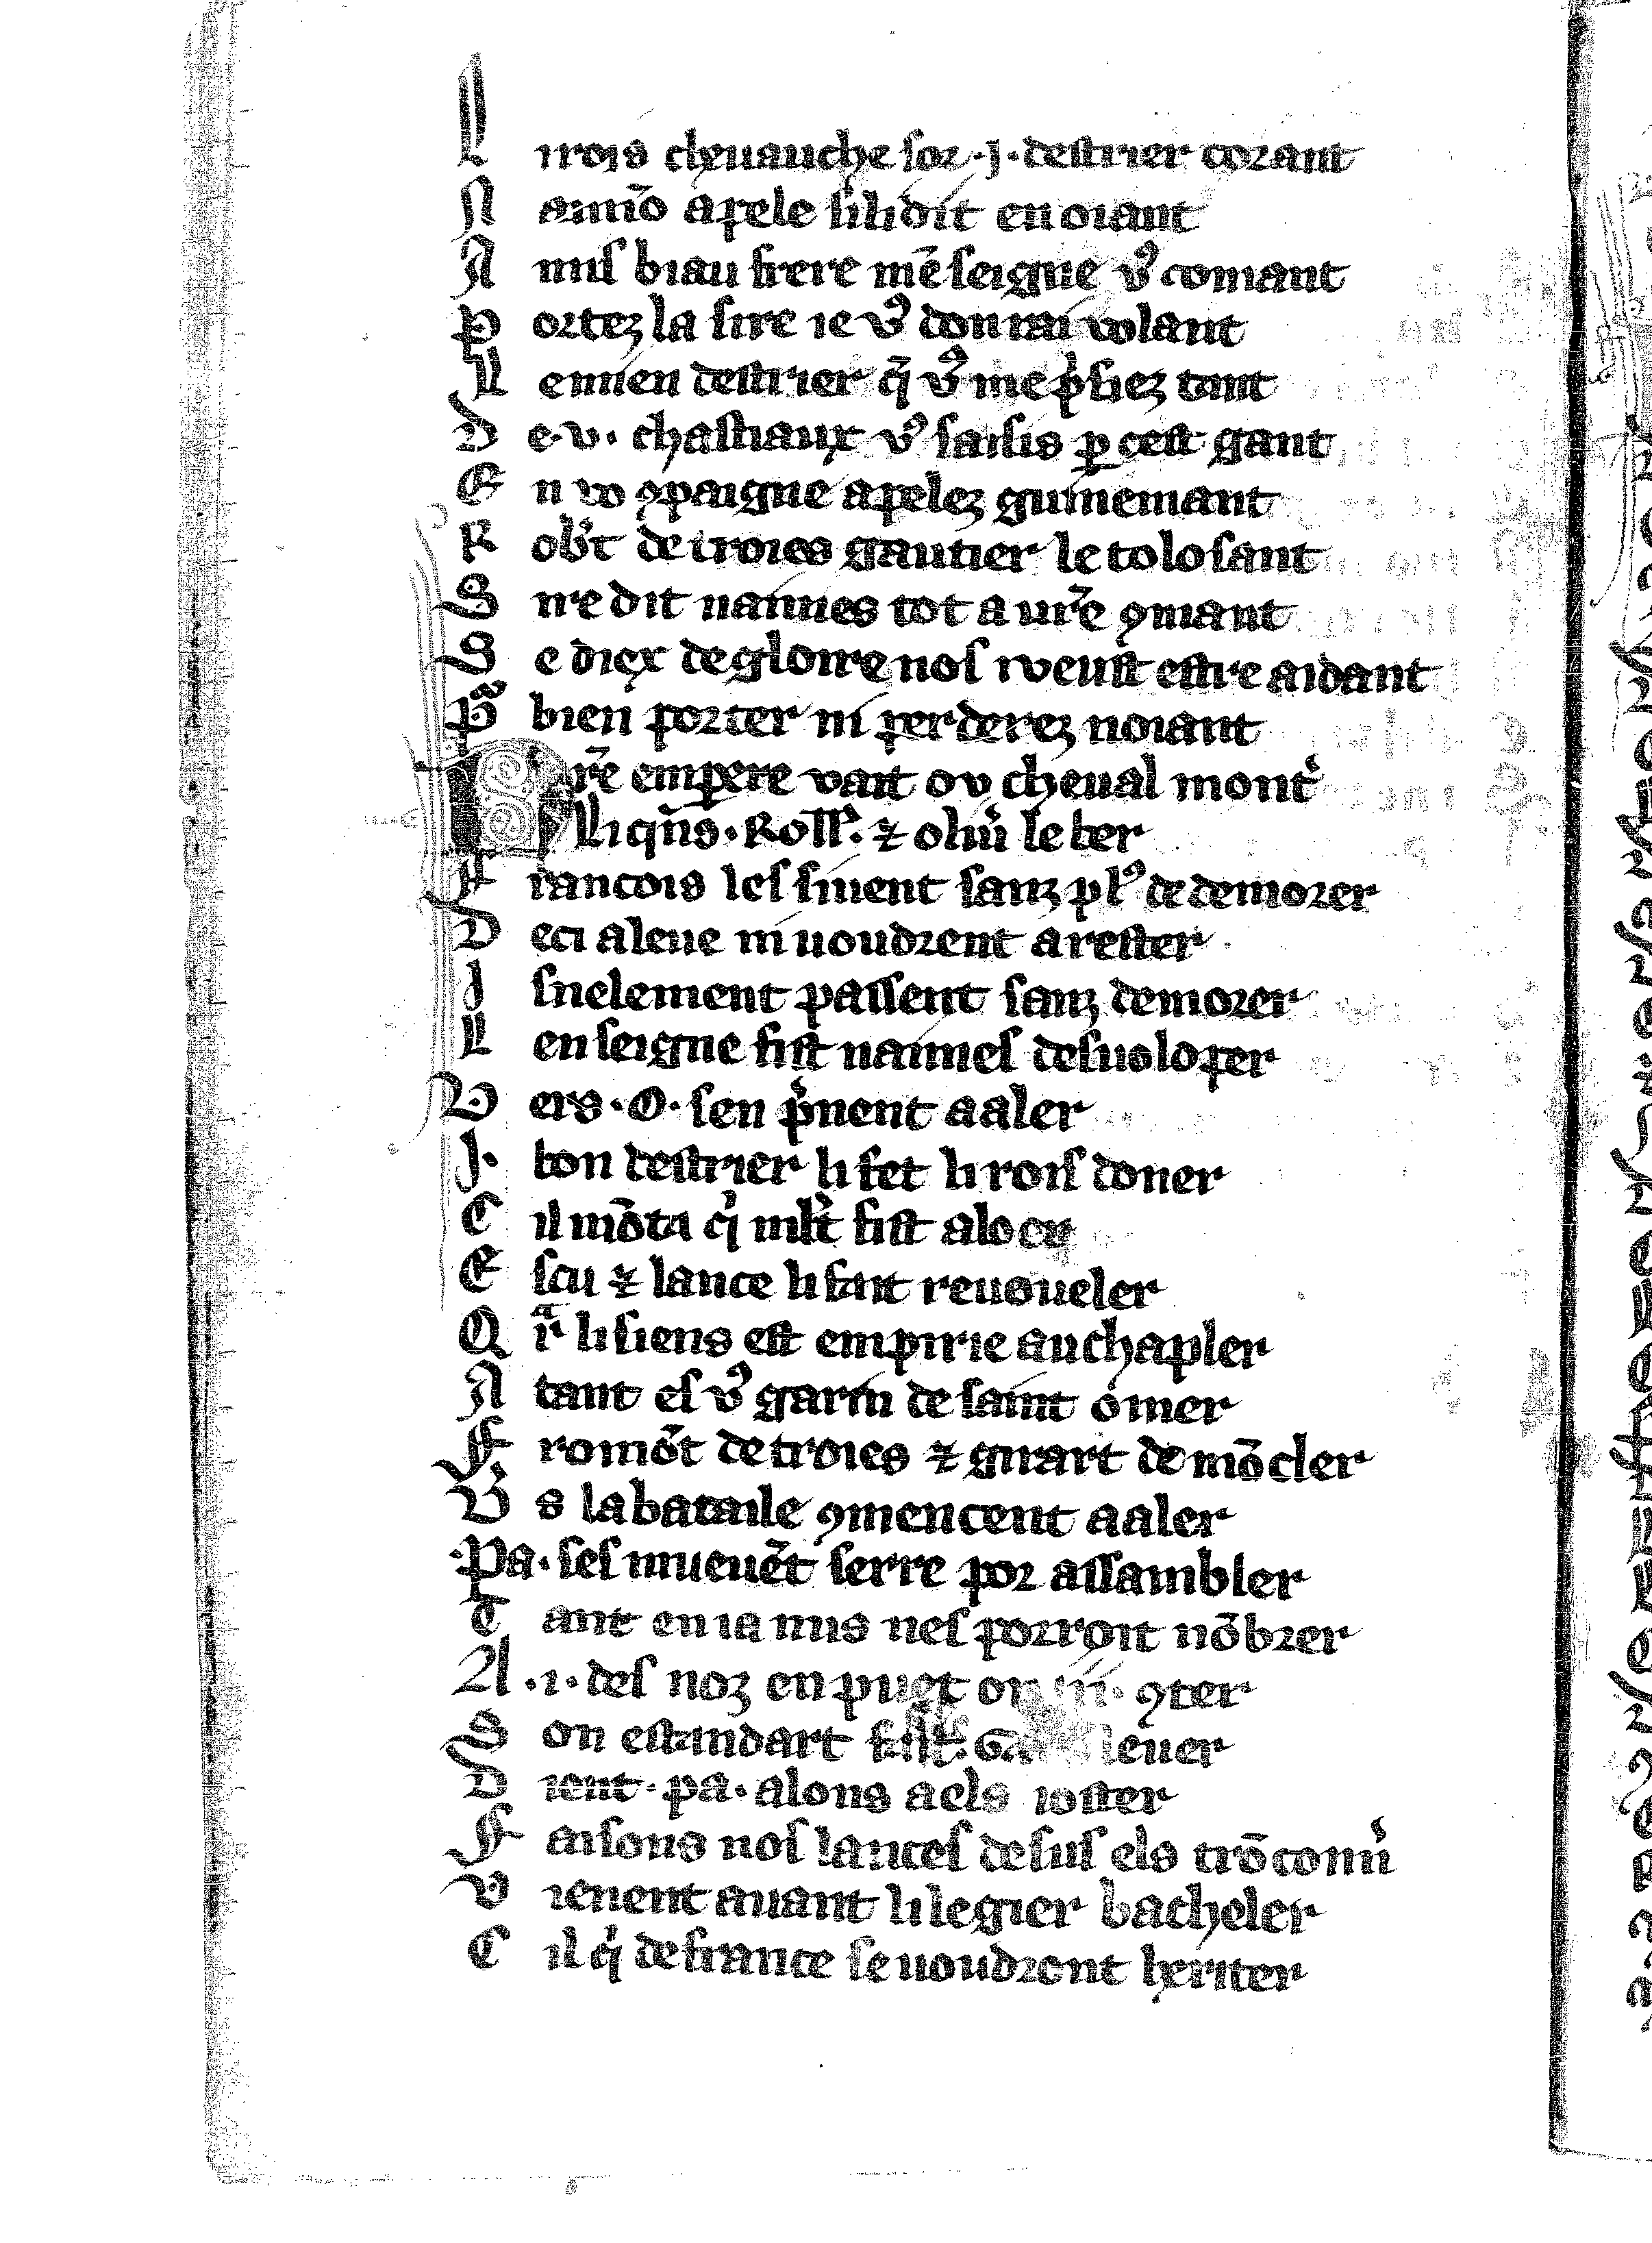 L irois cheuauche sor .j. destrier corant
N aimõ apele si li dit en oiant
A mis biau frere mẽseigne vꝰ comant
P ortez la sire ie vꝰ donrai volant
L emien destrier q̃ vꝰ me p̾siez tant
D e .v. chastiaux vꝰ saisis ꝑ cest gant
E n vo ꝯpaignie apelez guinemant
R ob̾t de troies gautier le tolosant
S ire dit naimes tot a vr̃e ꝯmant
S e diex de gloire nos iveust estre aidant
P̃ bien porter ni perderez noiant
N r̃e empere vait ou cheual mont̾
Li q̃ns . Roll̾. ⁊ oliu̾ le ber
F rancois les siuent sanz plꝰ de demorer
D eci aleue ni uoudrent arester
I snelement passent sanz demorer
L enseigne fist naimes desuoloper
V ers . O . sen p̾nent a aler
J. bon destrier li fet li rois doner
C il mõta qi ml̾t fist aloer
E scu ⁊ lance li fait renoueler
Q r̃ li siens est empirie au chapler
A tant es vꝰ garin de saint omer
F romõt de troies ⁊ girart de mõcler
V s la bataile ꝯmencent a aler
.Pa. ses mueuẽt serre por assambler
T ant en ia nus nes porroit nõbrer
A .i. des noz en puet on .iii. ꝯter
S on estandart leuer
D ient . pa . alons a els ioster
F aisons nos lances desus els trõconu̾
V ienent auant li legier bacheler
C il qi de france se uoudront heriter